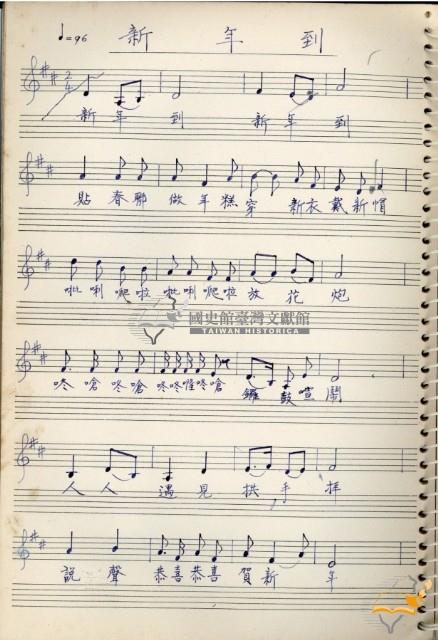 ♩=96 新年到
2/4
新年到 新年到
貼春聯做年糕穿新衣戴新帽
吡唎爬啦吡唎爬啦放花炮
國史館臺灣文獻館
TAIWAN HISTORICA
咚嗆咚嗆咚咚咚嗆鑼鼓喧鬧
人人遇見拱手拜
說聲恭喜恭喜賀新年